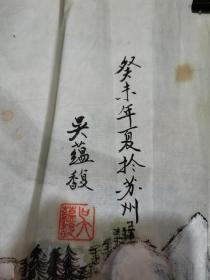 癸未年夏於苏州
吴蕴馥